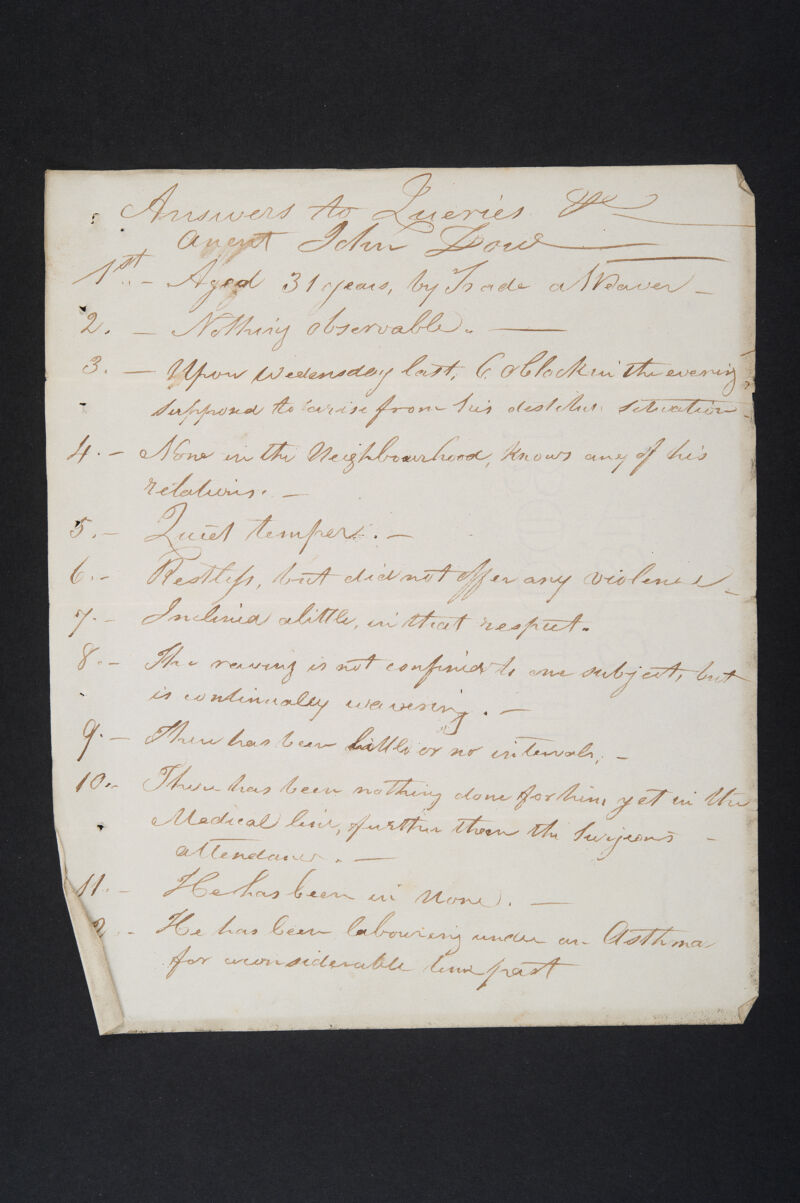 Answers to Queries &c
anent John Dow
1st - Aged 31 years, by Trade a Weaver -
2. - Nothing observable. -
3. - Upon Wedensday last, 6 oClock in the evening
supposed to arise from his destitute situation -
4. - None in the Neighbourhood, knows any of his
relations. -
5. - Quiet temper. -
6. - Restless, but did not offer any violence -
7. - Inclined a little, in that respect.
8. - The raving is not confined to one subject, but
is continually wavering. -
9. - There has been little or no intervals, -
10. - There has been nothing done for him yet in the
Medical line, further than the Surgeons -
attendance. -
11. - He has been in None. -
2. - He has been labouring under an Asthma
for a considerable time past